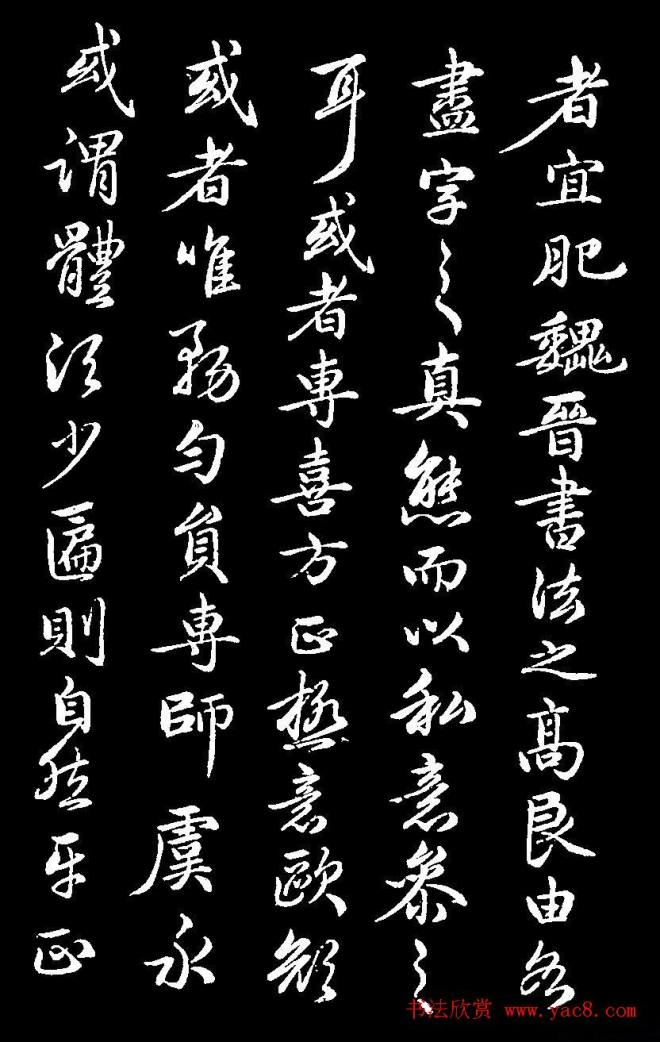 者宜肥魏晉書法之高良由各
盡字之真態而以私意參之
耳或者專喜方正極意歐顏
或者唯務勻負專師虞永
或謂體須少匾則自然平正
书法欣赏 www.yac8.com